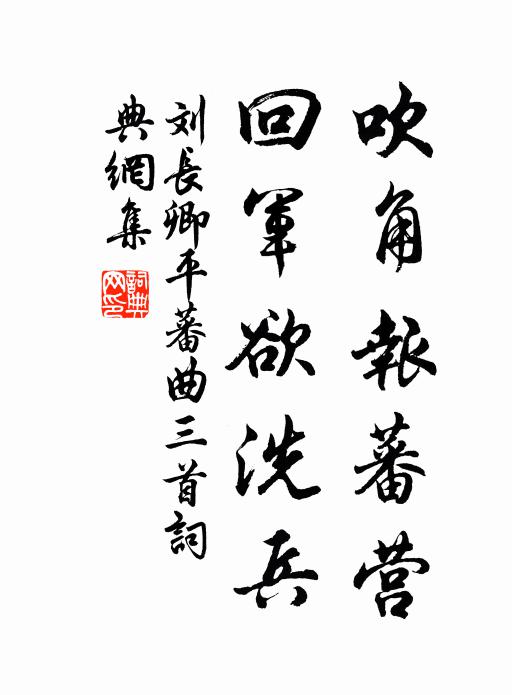 吹角報蕃营
回軍欲洗兵
刘長卿平蕃曲三首詞
典網集
詞典网印